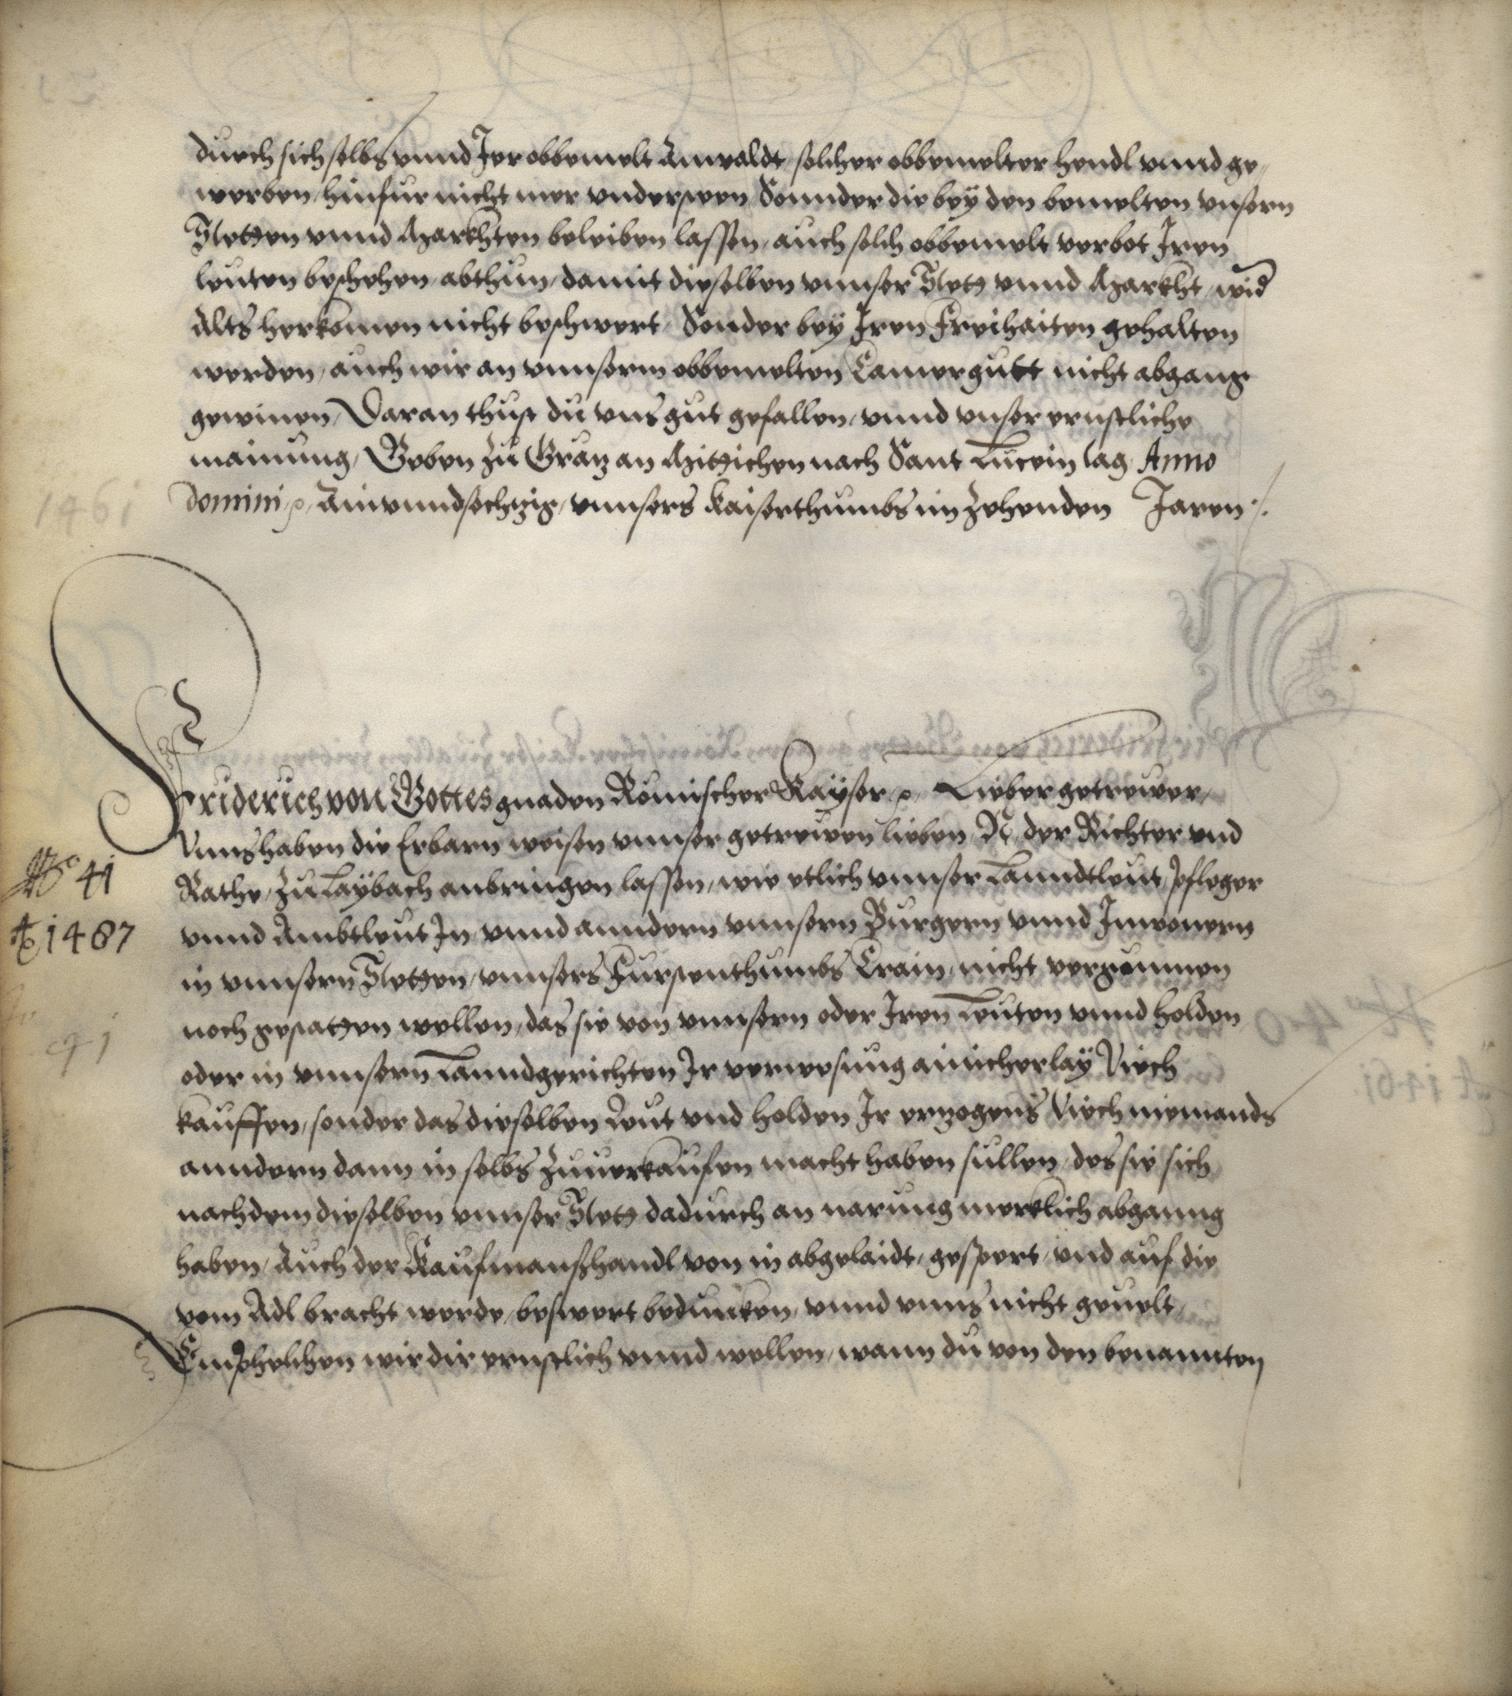 durch sich selbs vnnd Jer obbemelt Anwaldt solcher obbemelter hendl vnnd ge,
werben, hinfur nicht mer vndersteen Sonnder die bey den bemelten vnsern
Stetten vnnd Markhten beleiben lassen, auch solch obbemelt verbot Iren
leuten beschehen abthun, damit dieselben vnnser Stett vnnd Markht, wid
Alts herkomen nicht beschwert Sonder bey Iren Freihaiten gehalten
werden, auch wir an vnnserm obbemelten Camergutt nicht abgang
gewinen, Daran thust du vns gut gefallen, vnnd vnser ernstliche
mainung, Geben zu Gratz an Mittichen nach Sant Lucein tag Anno
domini, Ainvnndsechtzig, vnnsers Kaiserthumbs im Zehenden Jaren
1461
Friderich von Gottes gnaden Römischer Kayser, Lieber getrewer,
Vnns haben die Erbarn weisen vnnser getrewen lieben N der Richter vnd
No 41
Rathe, zu Laybach anbringen lassen, wie etlich vnnser Lanndtleut, Pfleger
A 1487
vnnd Ambtleut In vnnd anndern vnnsern Burgern vnnd Inwonern
in vnnsern Stetten, vnnsers Furstenthumbs Crain, nicht vergunnen
noch gestatten wellen, das sie von vnnsern oder Iren Leuten vnnd holden
oder in vnnsern Lanndgerichten Ir verwesung ainicherlay Viech
kauffen, sonder das dieselben Leut vnd holden Ir erzogens Viech niemands
anndern dann in selbs zuuerkaufen macht haben sullen, des sie sich
nachdem dieselben vnnser Stett dadurch an narung merklich abganng
haben, Auch der Kaufmanßhandl von in abgelaidt, gespert, vnd auf die
vom Adl bracht werde, beswert bedunken, vnnd vnns nicht geuelt,
Emphelhen wir dir ernstlich vnnd wellen, wann du von den benannten